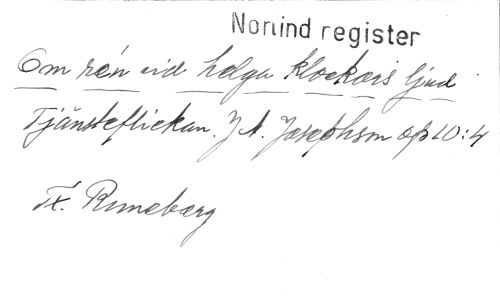 Norlind register
Om r'én vid helga klockors ljud
Tjänsteflickan. J A. Josephson op 10:4
Tx. Runeberg